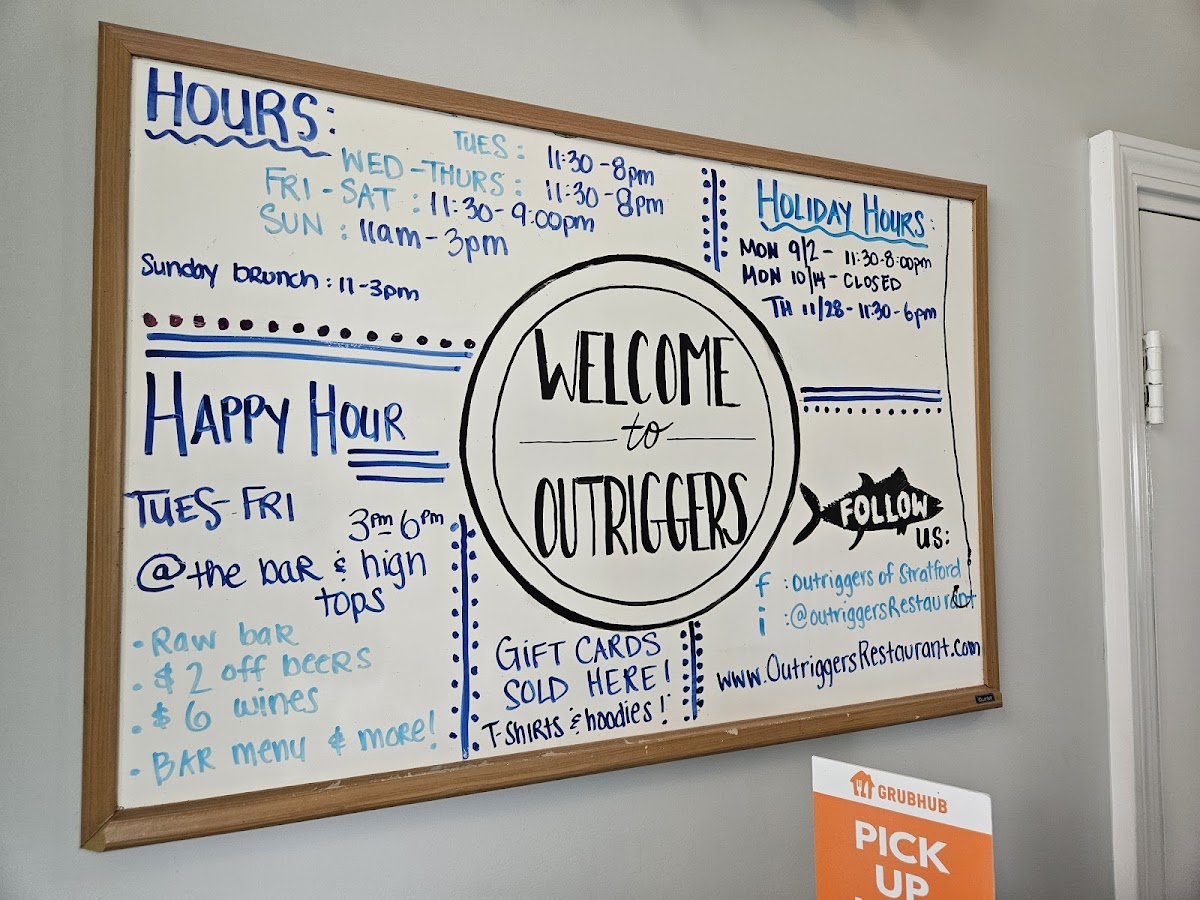 HOURS:
TUES: 11:30-8pm
WED-THURS: 11:30-8pm
FRI-SAT: 11:30-9:00pm
SUN: 11am-3pm
Sunday brunch: 11-3pm
HOLIDAY HOURS:
MON 9/2 - 11:30-8:00pm
MON 10/14 - CLOSED
TH 11/28 - 11:30-6pm
WELCOME
to
OUTRIGGERS
HAPPY HOUR
TUES-FRI
3pm-6pm
@ the bar & high
tops
• Raw bar
• $2 off beers
• $6 wines
• BAR menu & more!
GIFT CARDS
SOLD HERE!
T-Shirts & hoodies!
FOLLOW
us:
f : outriggers of Stratford
i : @outriggersRestaurant
www.OutriggersRestaurant.com
GRUBHUB
PICK
UP